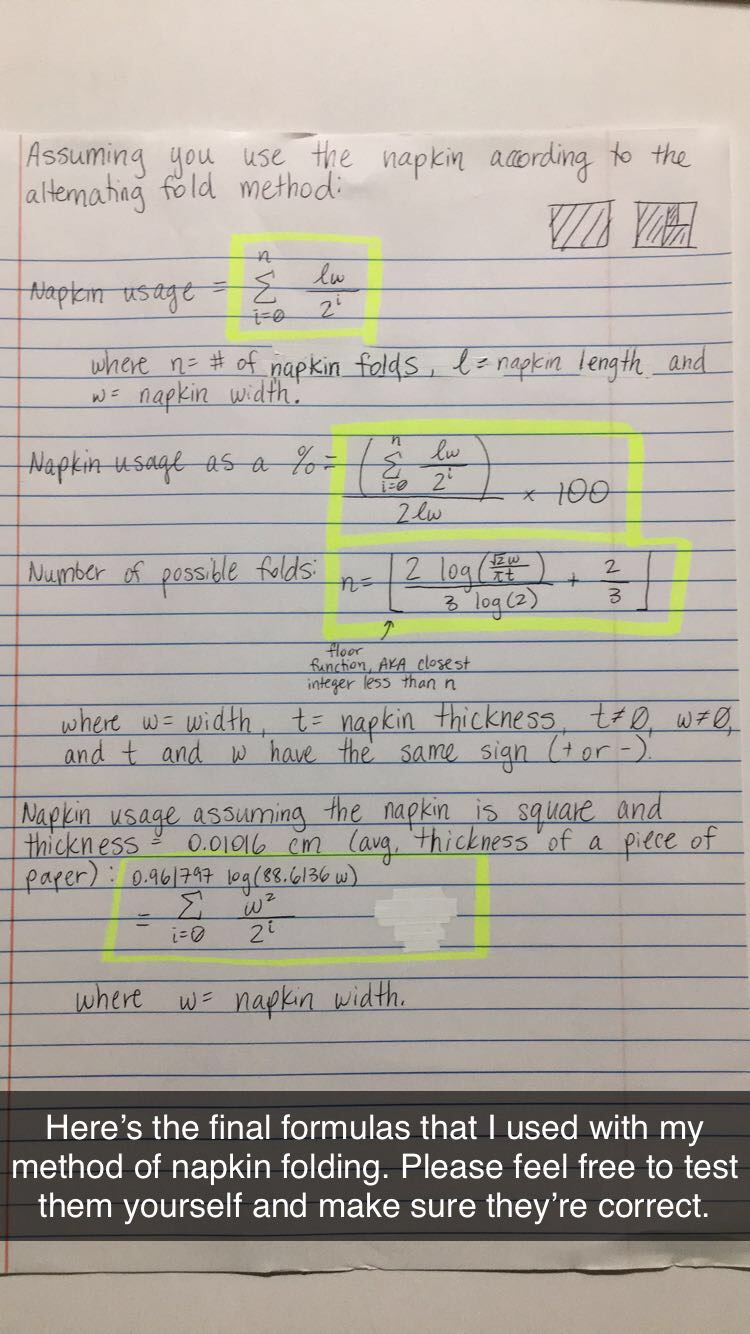 Assuming you use the napkin according to the
alternating fold method:
Napkin usage = n∑i=0 lw/2^i
where n= # of napkin folds, l= napkin length and
w= napkin width.
Napkin usage as a % = (n∑i=0 lw/2^i)/2lw × 100
Number of possible folds: n= ⌊2 log(√2w/πt)/3 log(2) + 2/3⌋
floor
function, AKA closest
integer less than n
where w= width, t= napkin thickness, t≠0, w≠0,
and t and w have the same sign (+ or -).
Napkin usage assuming the napkin is square and
thickness = 0.01016 cm (avg. thickness of a piece of
paper): 0.961797 log(88.6136 w)
= ∑i=0 w²/2^i
where w= napkin width.
Here's the final formulas that I used with my
method of napkin folding. Please feel free to test
them yourself and make sure they're correct.